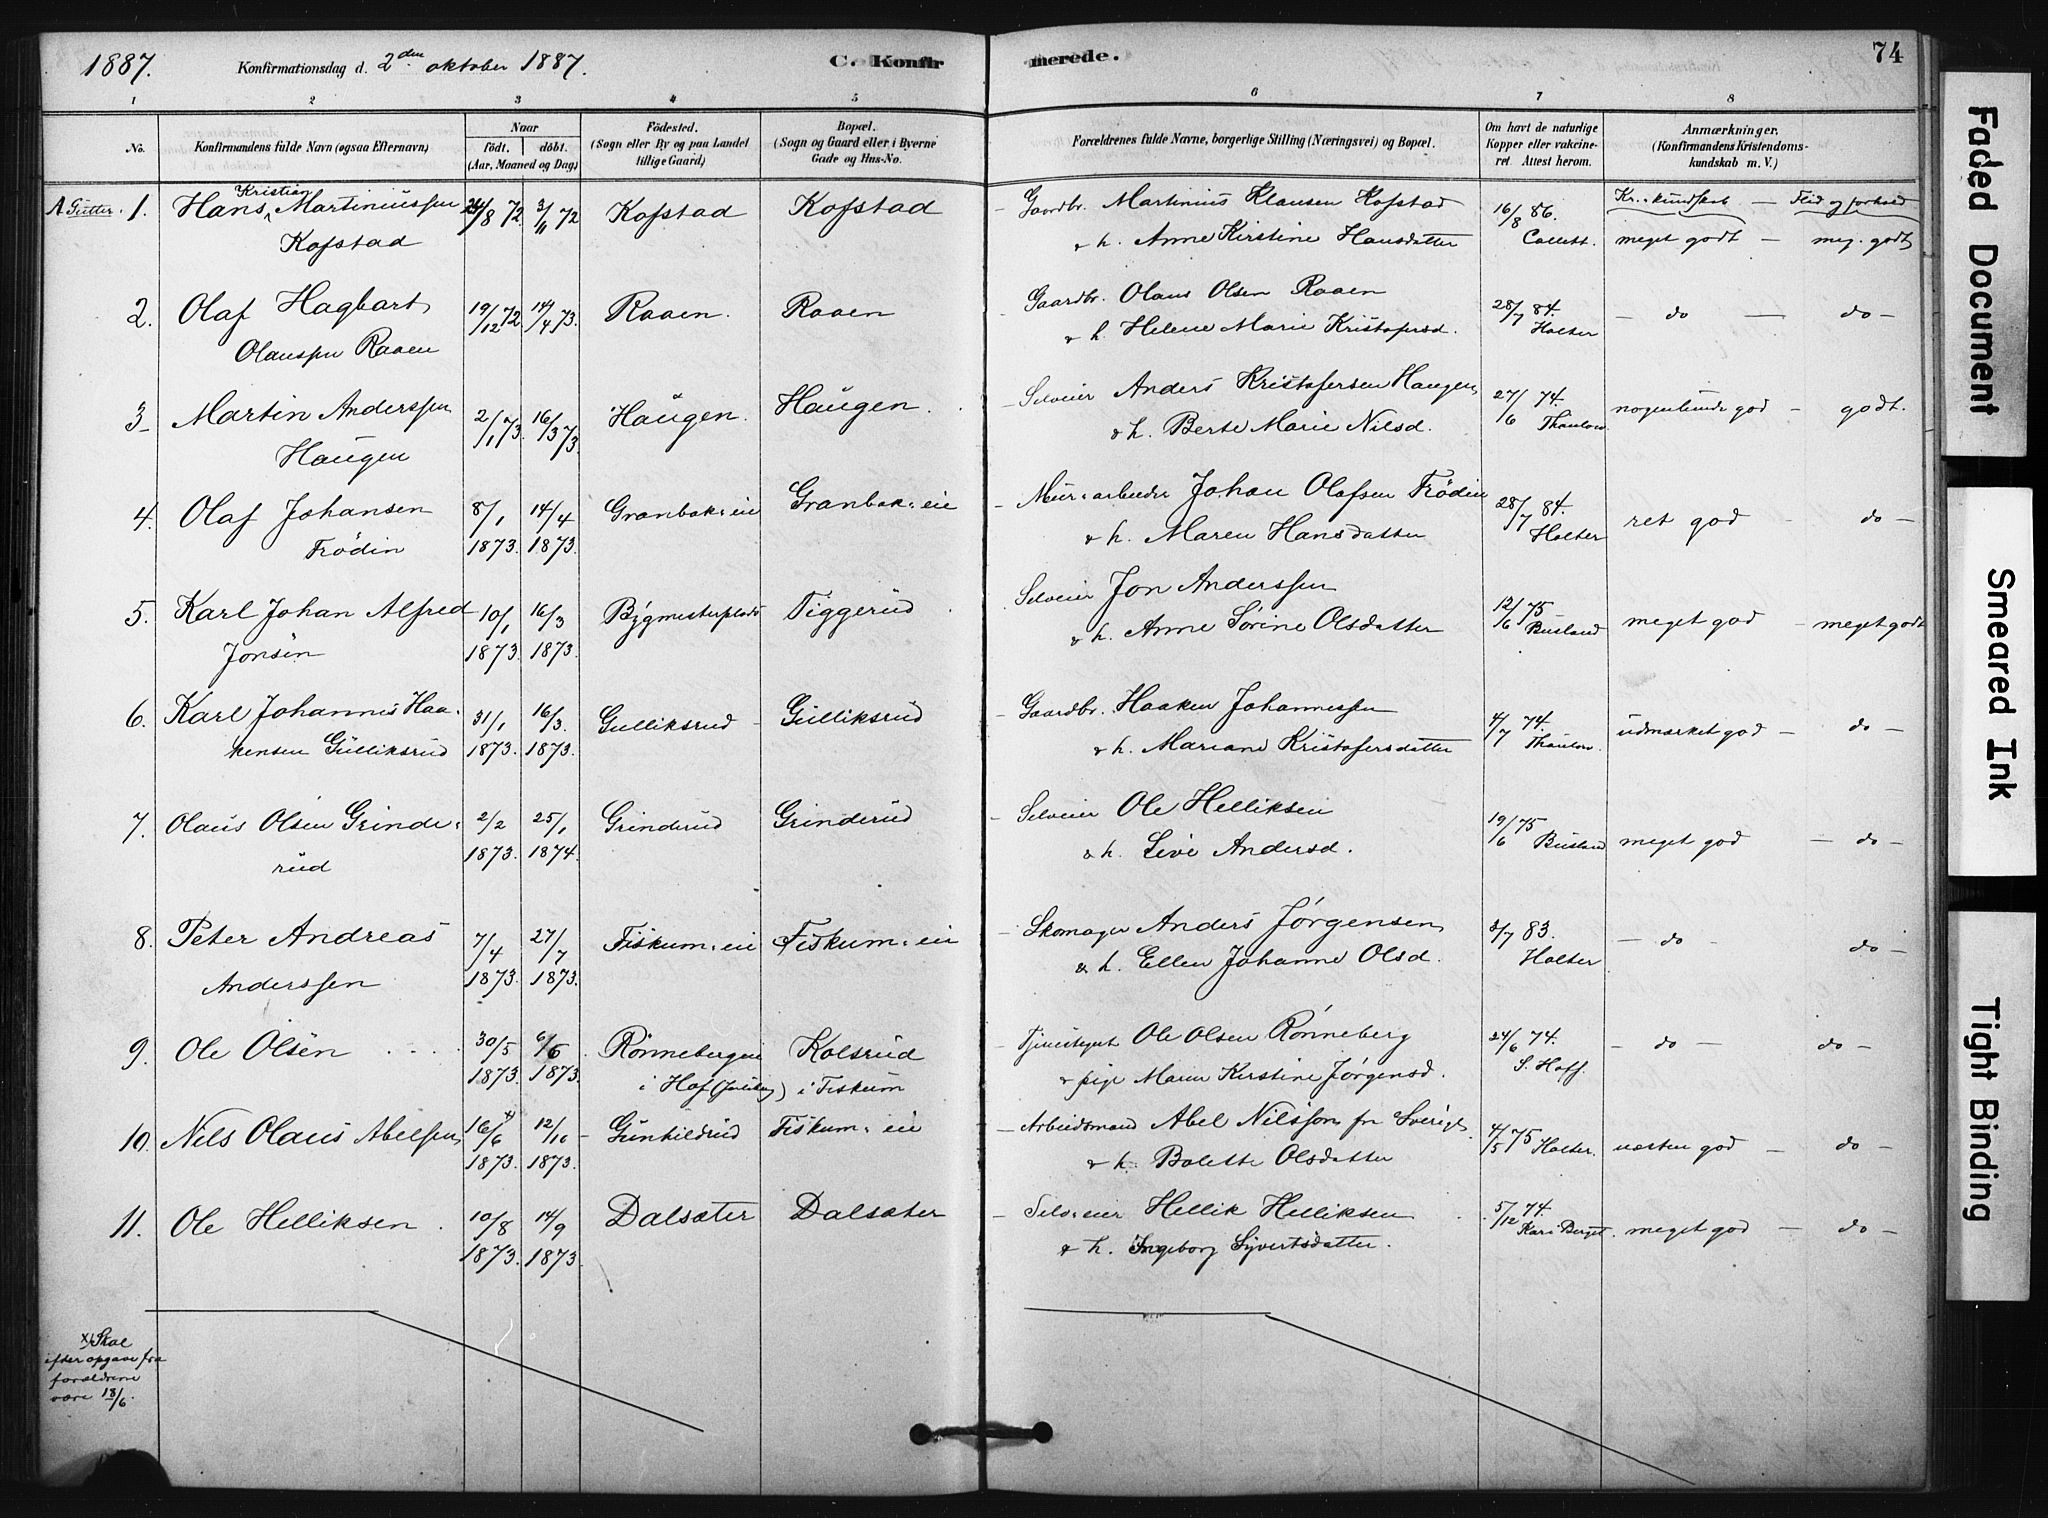 1887. Konfirmationsdag d. 2den oktober 1887. C. Konfirmerede. 74
1 2 3 4 5 6 7 8
No. Konfirmandens fulde Navn (ogsaa Efternavn) Naar født. døbt. (Aar, Maaned og Dag) Födested. (Sogn eller By og paa Landet tillige Gaard) Bopæl. (Sogn og Gaard eller i Byerne Gade og Hus-No. Forældrenes fulde Navne, borgerlige Stilling (Næringsvei) og Bopæl. Om havt de naturlige Kopper eller vakcineret. Attest herom. Anmærkninger. (Konfirmandens Kristendomskundskab m. V.)
A Gutter. 1. Hans Kristian Martiniussen 24/8 72 3/11 72 Kofstad Kofstad Gaardbr. Martinius Klausen Kofstad 16/8 86. Kr. kundskab — Flid og forhold
Kofstad & h. Anne Kirstine Hansdatter Collett. meget godt — meg. godt
2. Olaf Hagbart 19/12 72 14/4 73. Raaen. Raaen Gaardbr. Olaus Olsen Raaen 28/7 84. — do — do —
Olaussen Raaen & h. Helene Marie Kristofersd. Holter
3. Martin Anderssen 2/1 73. 16/3 73. Haugen. Haugen. Selveier Anders Kristofersen Haugen 27/6 74. nogenlunde god — godt.
Haugen & h. Berte Marie Nilsd. Thaulow.
4. Olaf Johansen 8/1 14/4 Granbak: eie Granbak: eie Mur: arbeider Johan Olafsen Frödin 28/7 84. ret god — do —
Frödin 1873. 1873. & h. Maren Hansdatter Holter
5. Karl Johan Alfred 10/1 16/3 Bygmesterplads Tiggerud Selveier Jon Anderssen 12/6 75 meget god — meget godt
Jonsen 1873. 1873. & h. Anne Sørine Olsdatter Busland
6. Karl Johannes Haa- 31/1 16/3 Gulliksrud Gulliksrud Gaardbr. Haaken Johannessen 4/7 74. udmærket god — do —
kensen Gulliksrud 1873. 1873. & h. Mariane Kristofersdatter Thaulow.
7. Olaus Olsen Grinde- 2/2 25/1 Grinderud Grinderud Selveier Ole Helliksen 19/6 75 meget god — do —
rud 1873. 1874. & h. Live Andersd. Busland
8. Peter Andreas 7/4 27/7 Fiskum: eie Fiskum: eie Skomager Anders Jørgensen 2/7 83. — do — do —
Anderssen 1873. 1873. & h. Ellen Johanne Olsd. Holter
9. Ole Olsen 30/5 6/6 Rønnebergeie Kolsrud Tjenestegut Ole Olsen Rønneberg 24/6 74. — do — do —
1873. 1873. i Hof (Jarlsberg) i Fiskum & pige Maren Kirstine Jørgensd. S. Hoff.
10. Nils Olaus Abelsen 16/6 x) 12/10 Gunhildrud Fiskum: eie Arbeidsmand Abel Nilsson fr Sverige 4/5 75 Holter. næsten god — do —
1873. 1873. & h. Bolette Olsdatter
11. Ole Helliksen 10/8 14/9 Dalsæter Dalsæter Selveier Hellik Helliksen 5/12 74. meget god — do —
1873. 1873. & h. Ingeborg Syvertsdatter. Kari Berget.
x) Skal
efter opgave fra
forældrene
være 18/6.
Faded Document
Smeared Ink
Tight Binding